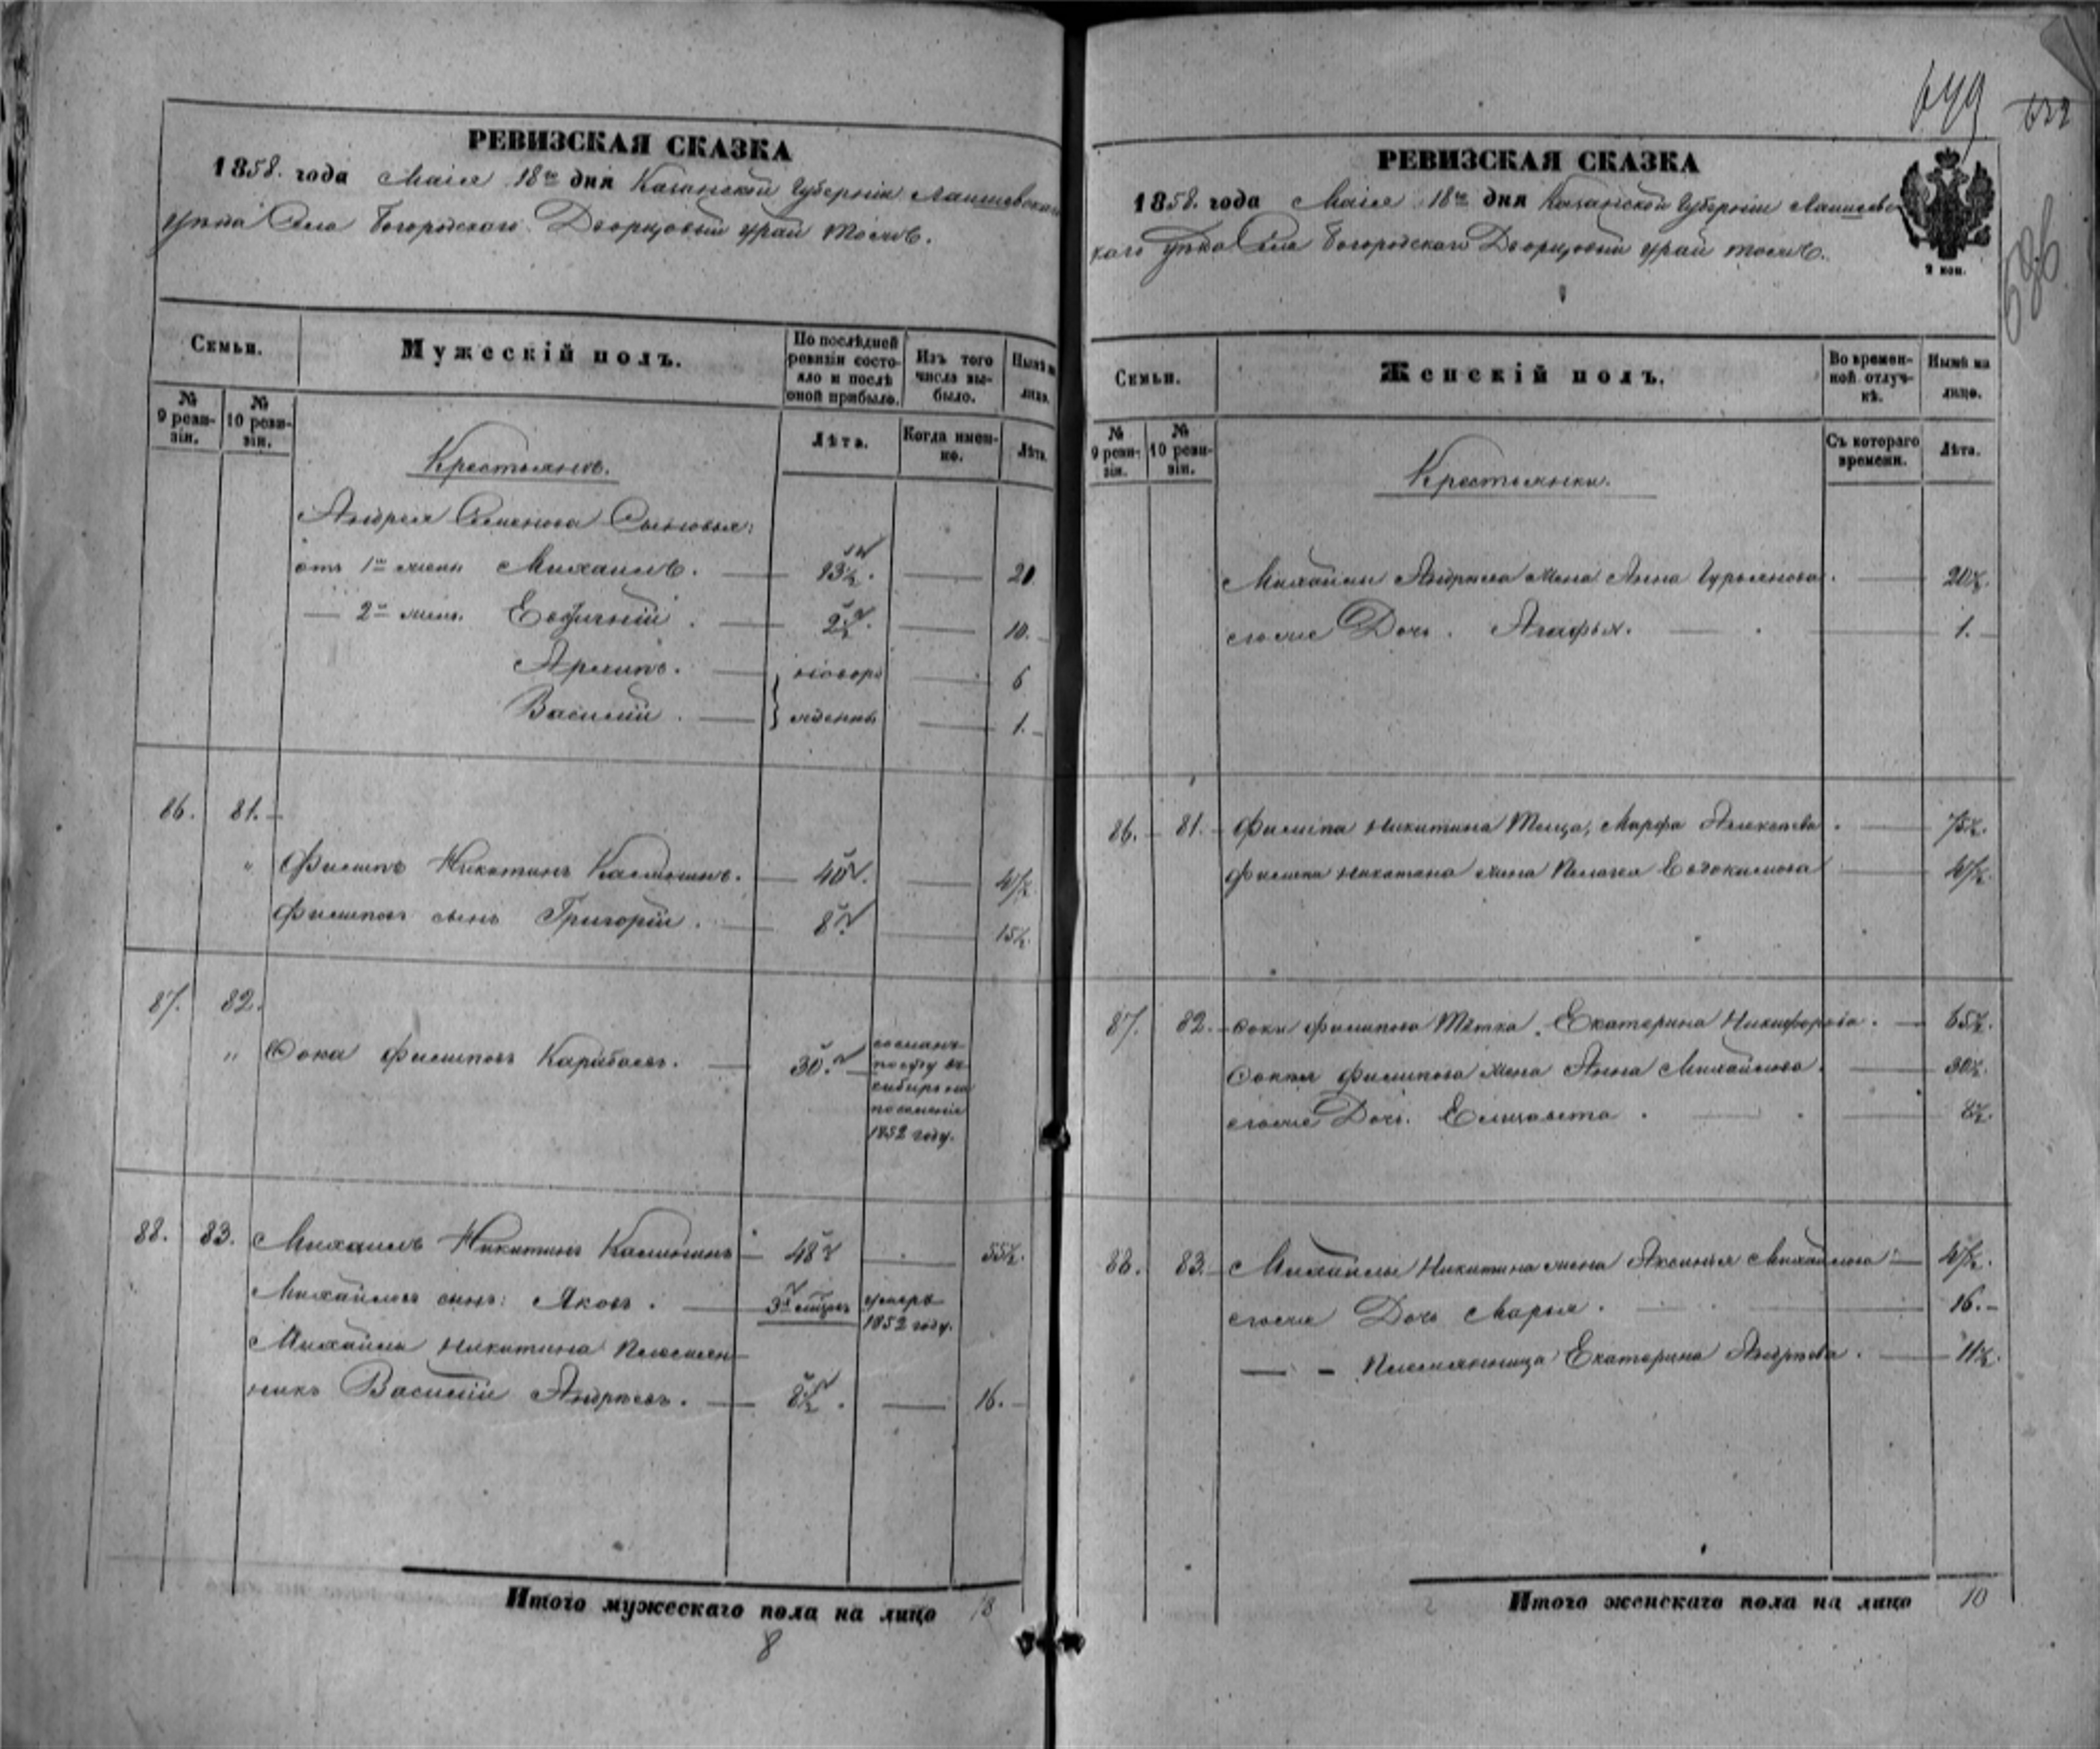 РЕВИЗСКАЯ СКАЗКА
1858. года Маія 18го дня Казанской Губерніи Лаишевскаго
уѣзда Села Богородскаго
Семьи.
Мужескій полъ.
По послѣдней ревизіи состояло и послѣ оной прибыло.
Изъ того числа выбыло.
Нынѣ на лицо.
№ 9 ревизіи.
№ 10 ревизіи.
Лѣта.
Когда именно.
Лѣта.
Крестьянъ.
Андрея Семенова Сыновья:
отъ 1й жены Михаилъ. 13½. 20
— 2й жены Евфимій. 2½. 10.
Архипъ. новоро 6
Василій. жденны 1.
86. 81.
" Филипъ Никитинъ 40. 47½
Филиповъ сынъ Григорій. 8. 15½.
87. 82.
" Фока Филиповъ Карабаевъ. 30.
Сибирь на
поселеніе
1852 году.
88. 83. Михаилъ Никитинъ 48 55½.
Михайловъ сынъ: Яковъ. умеръ
1852 году.
Михайлы Никитина Племян-
никъ Василій Андреевъ. 8½. 16.
Итого мужескаго пола на лицо 8
8
649
РЕВИЗСКАЯ СКАЗКА
1858. года Маія 18го дня Казанской Губерніи Лаишевс-
каго уѣзда Села Богородскаго
2 коп.
Семьи.
Женскій полъ.
Во временной отлучкѣ.
Нынѣ на лицо.
№ 9 ревизіи.
№ 10 ревизіи.
Съ котораго времени.
Лѣта.
Крестьянки.
Михайлы Андреева жена Анна Гурьянова. 20½.
егоже Дочь. Агафья. 1.
86. 81. Филипа Никитина Теща, Марфа Алексеева. 75½.
Филипа Никитина жена Пелагея Евдокимова 47½.
87. 82. Фоки Филипова Тётка, Екатерина Никифорова. 65½.
Филипова жена Анна Михайлова. 30½.
егоже Дочь. Елизавета. 8½.
88. 83. Михайлы Никитина жена Аксинья Михайлова 47½.
егоже Дочь Марья. 16.
— – Племянница Екатерина Андреева. 11½.
Итого женскаго пола на лицо 10